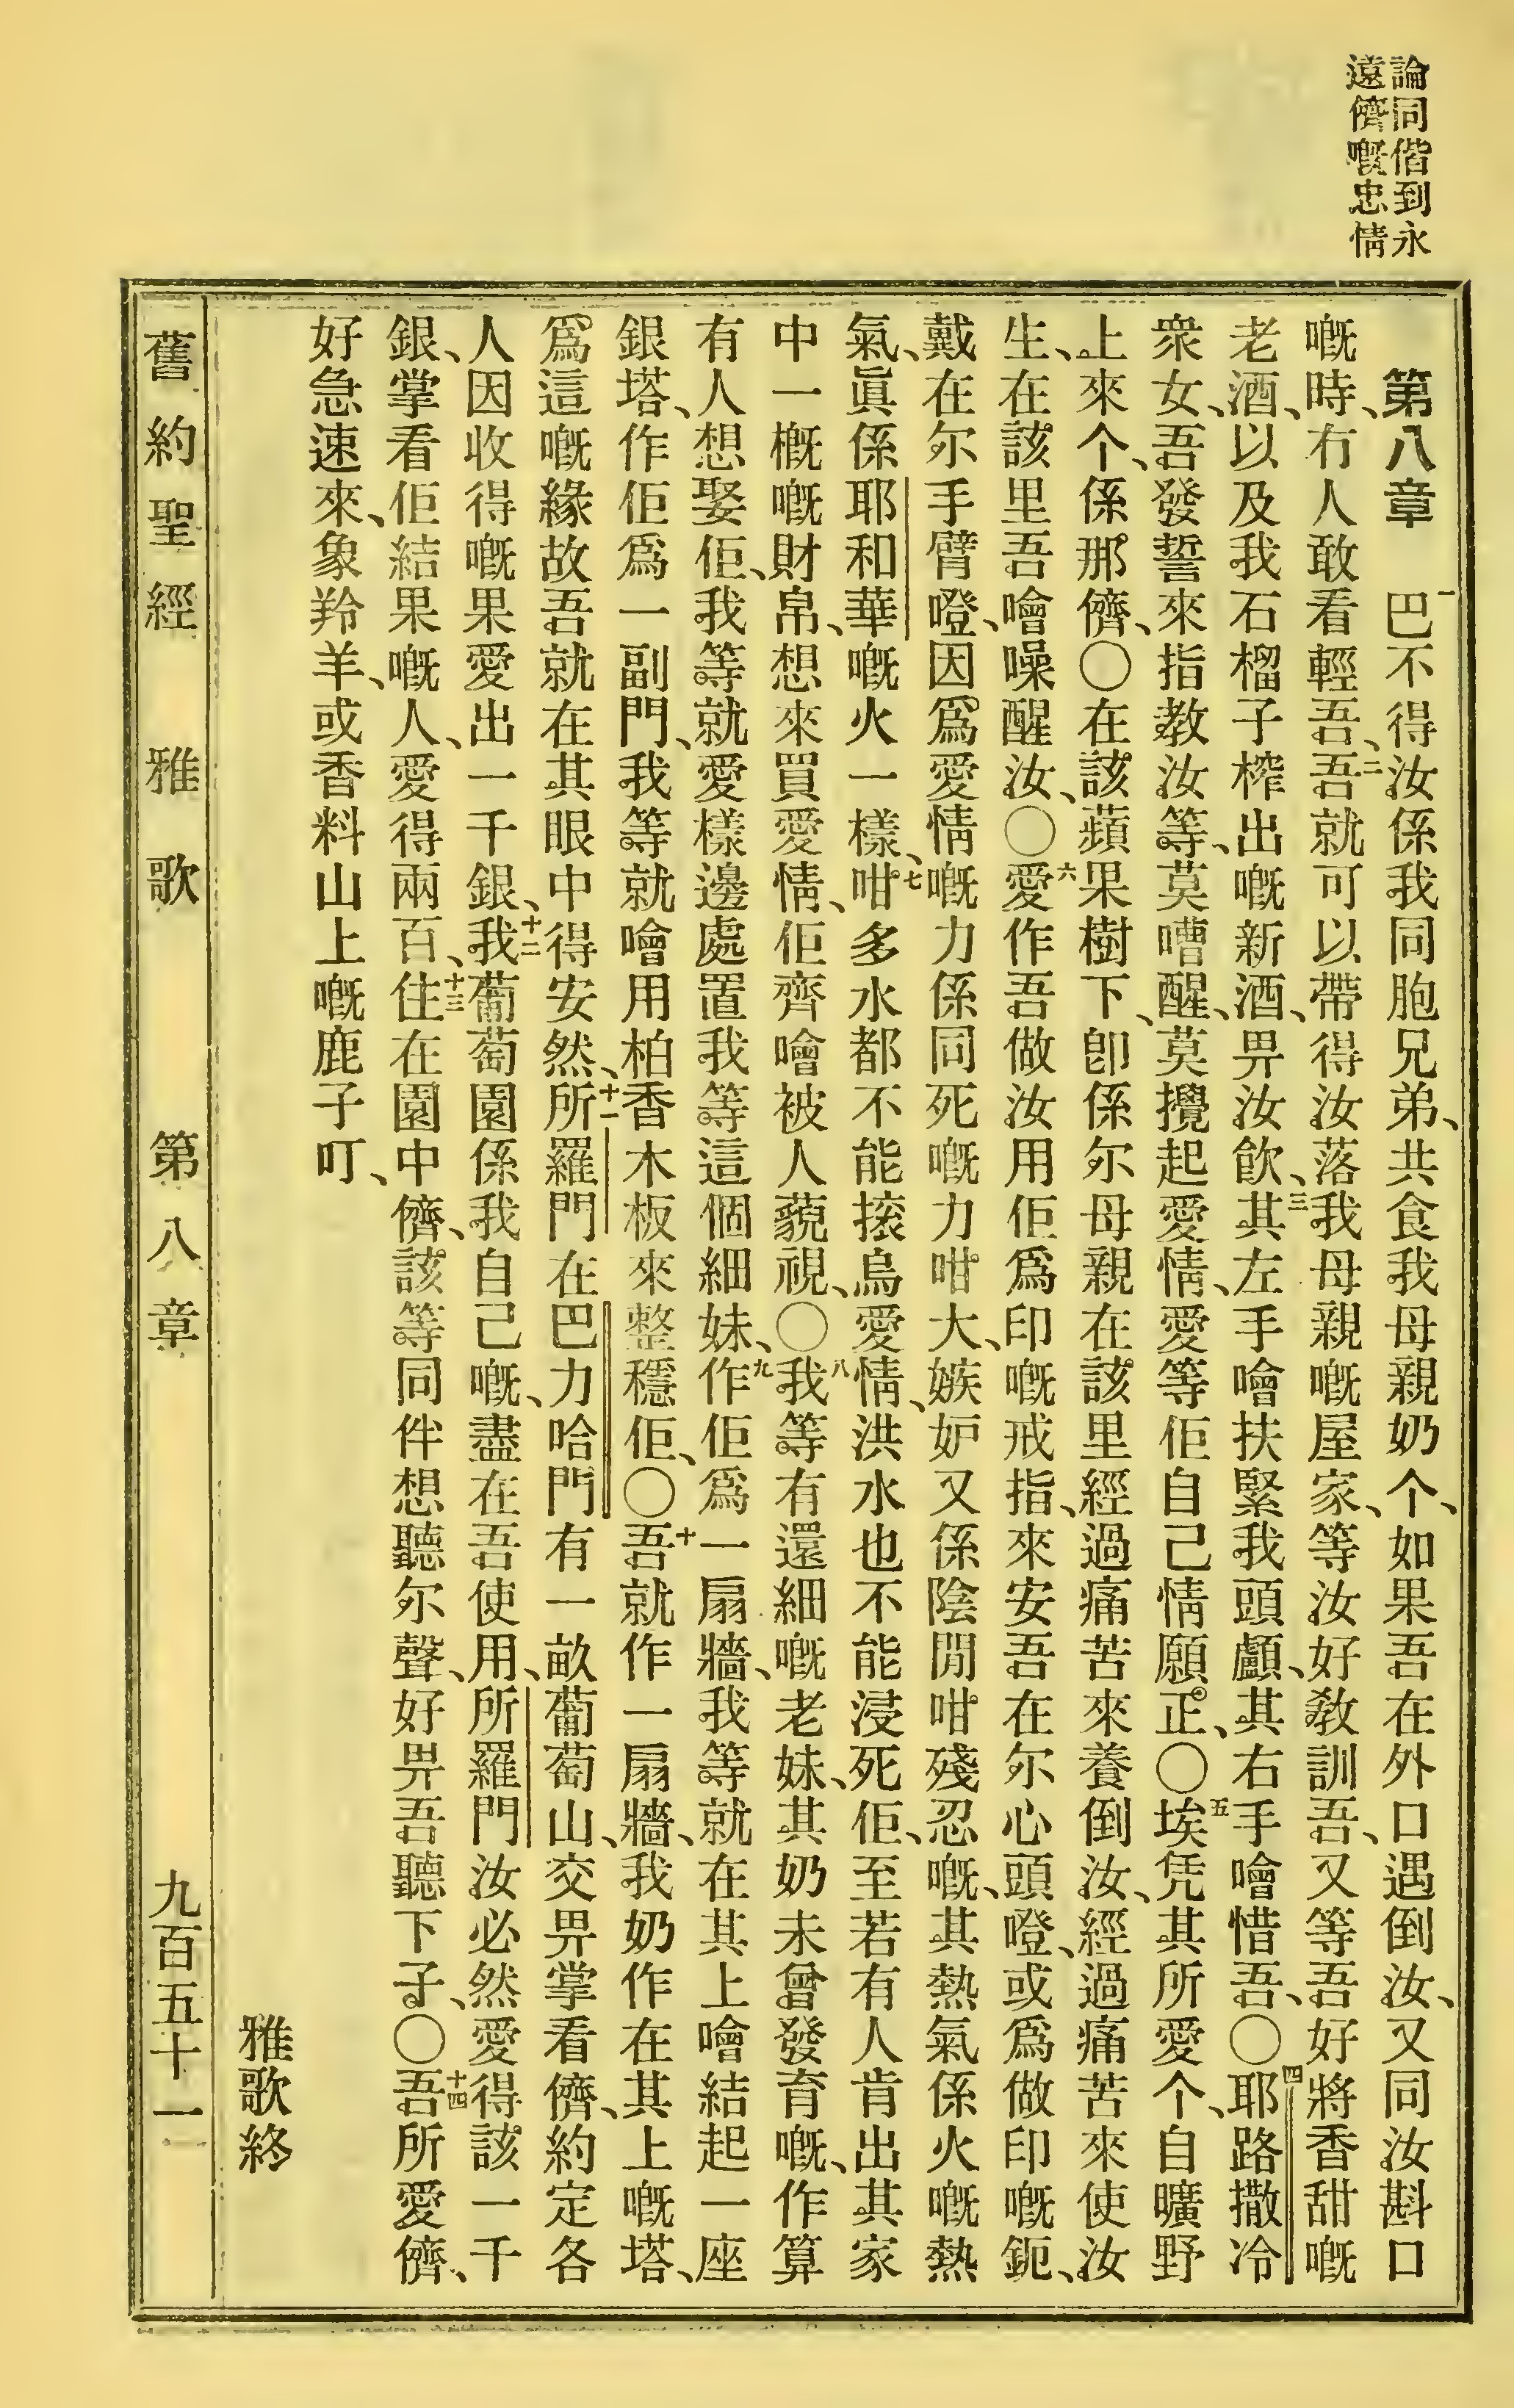 論同偕到永
遠儕嘅忠情
第八章 一巴不得汝係我同胞兄弟、共食我母親奶个、如果吾在外口遇倒汝、又同汝斟口
嘅時、冇人敢看輕吾、二吾就可以帶得汝落我母親嘅屋家、等汝好教訓吾、又等吾好將香甜嘅
老酒、以及我石榴子榨出嘅新酒、畀汝飲、三其左手噲扶緊我頭顱、其右手噲惜吾、〇四耶路撒冷
衆女、吾發誓來指教汝等、莫嘈醒、莫攪起愛情、愛等佢自己情願正、〇五埃凭其所愛个、自曠野
上來个、係那儕、〇在該蘋果樹下、卽係尔母親在該里經過痛苦來養倒汝、經過痛苦來使汝
生、在該里吾噲噪醒汝、〇六愛作吾做汝用佢爲印嘅戒指、來安吾在尔心頭噔、或爲做印嘅鈪、
戴在尔手臂噔、因爲愛情嘅力係同死嘅力咁大、嫉妒又係陰間咁殘忍嘅、其熱氣係火嘅熱
氣、眞係耶和華嘅火一樣、七咁多水都不能㨰烏愛情、洪水也不能浸死佢、至若有人肯出其家
中一概嘅財帛、想來買愛情、佢齊噲被人藐視、〇八我等有還細嘅老妹、其奶未曾發育嘅、作算
有人想娶佢、我等就愛樣邊處置我等這個細妹、九作佢爲一扇牆、我等就在其上噲結起一座
銀塔、作佢爲一副門、我等就噲用柏香木板來整穩佢、〇十吾就作一扇牆、我奶作在其上嘅塔、
爲這嘅緣故吾就在其眼中得安然、十一所羅門在巴力哈門有一畝葡萄山、交畀掌看儕、約定各
人因收得嘅果愛出一千銀、十二我葡萄園係我自己嘅、盡在吾使用、所羅門汝必然愛得該一千
銀、掌看佢結果嘅人、愛得兩百、十三住在園中儕、該等同伴想聽尔聲、好畀吾聽下子、〇十四吾所愛儕、
好急速來、象羚羊、或香料山上嘅鹿子叮、
雅歌終
舊約聖經 雅歌 第八章 九百五十一